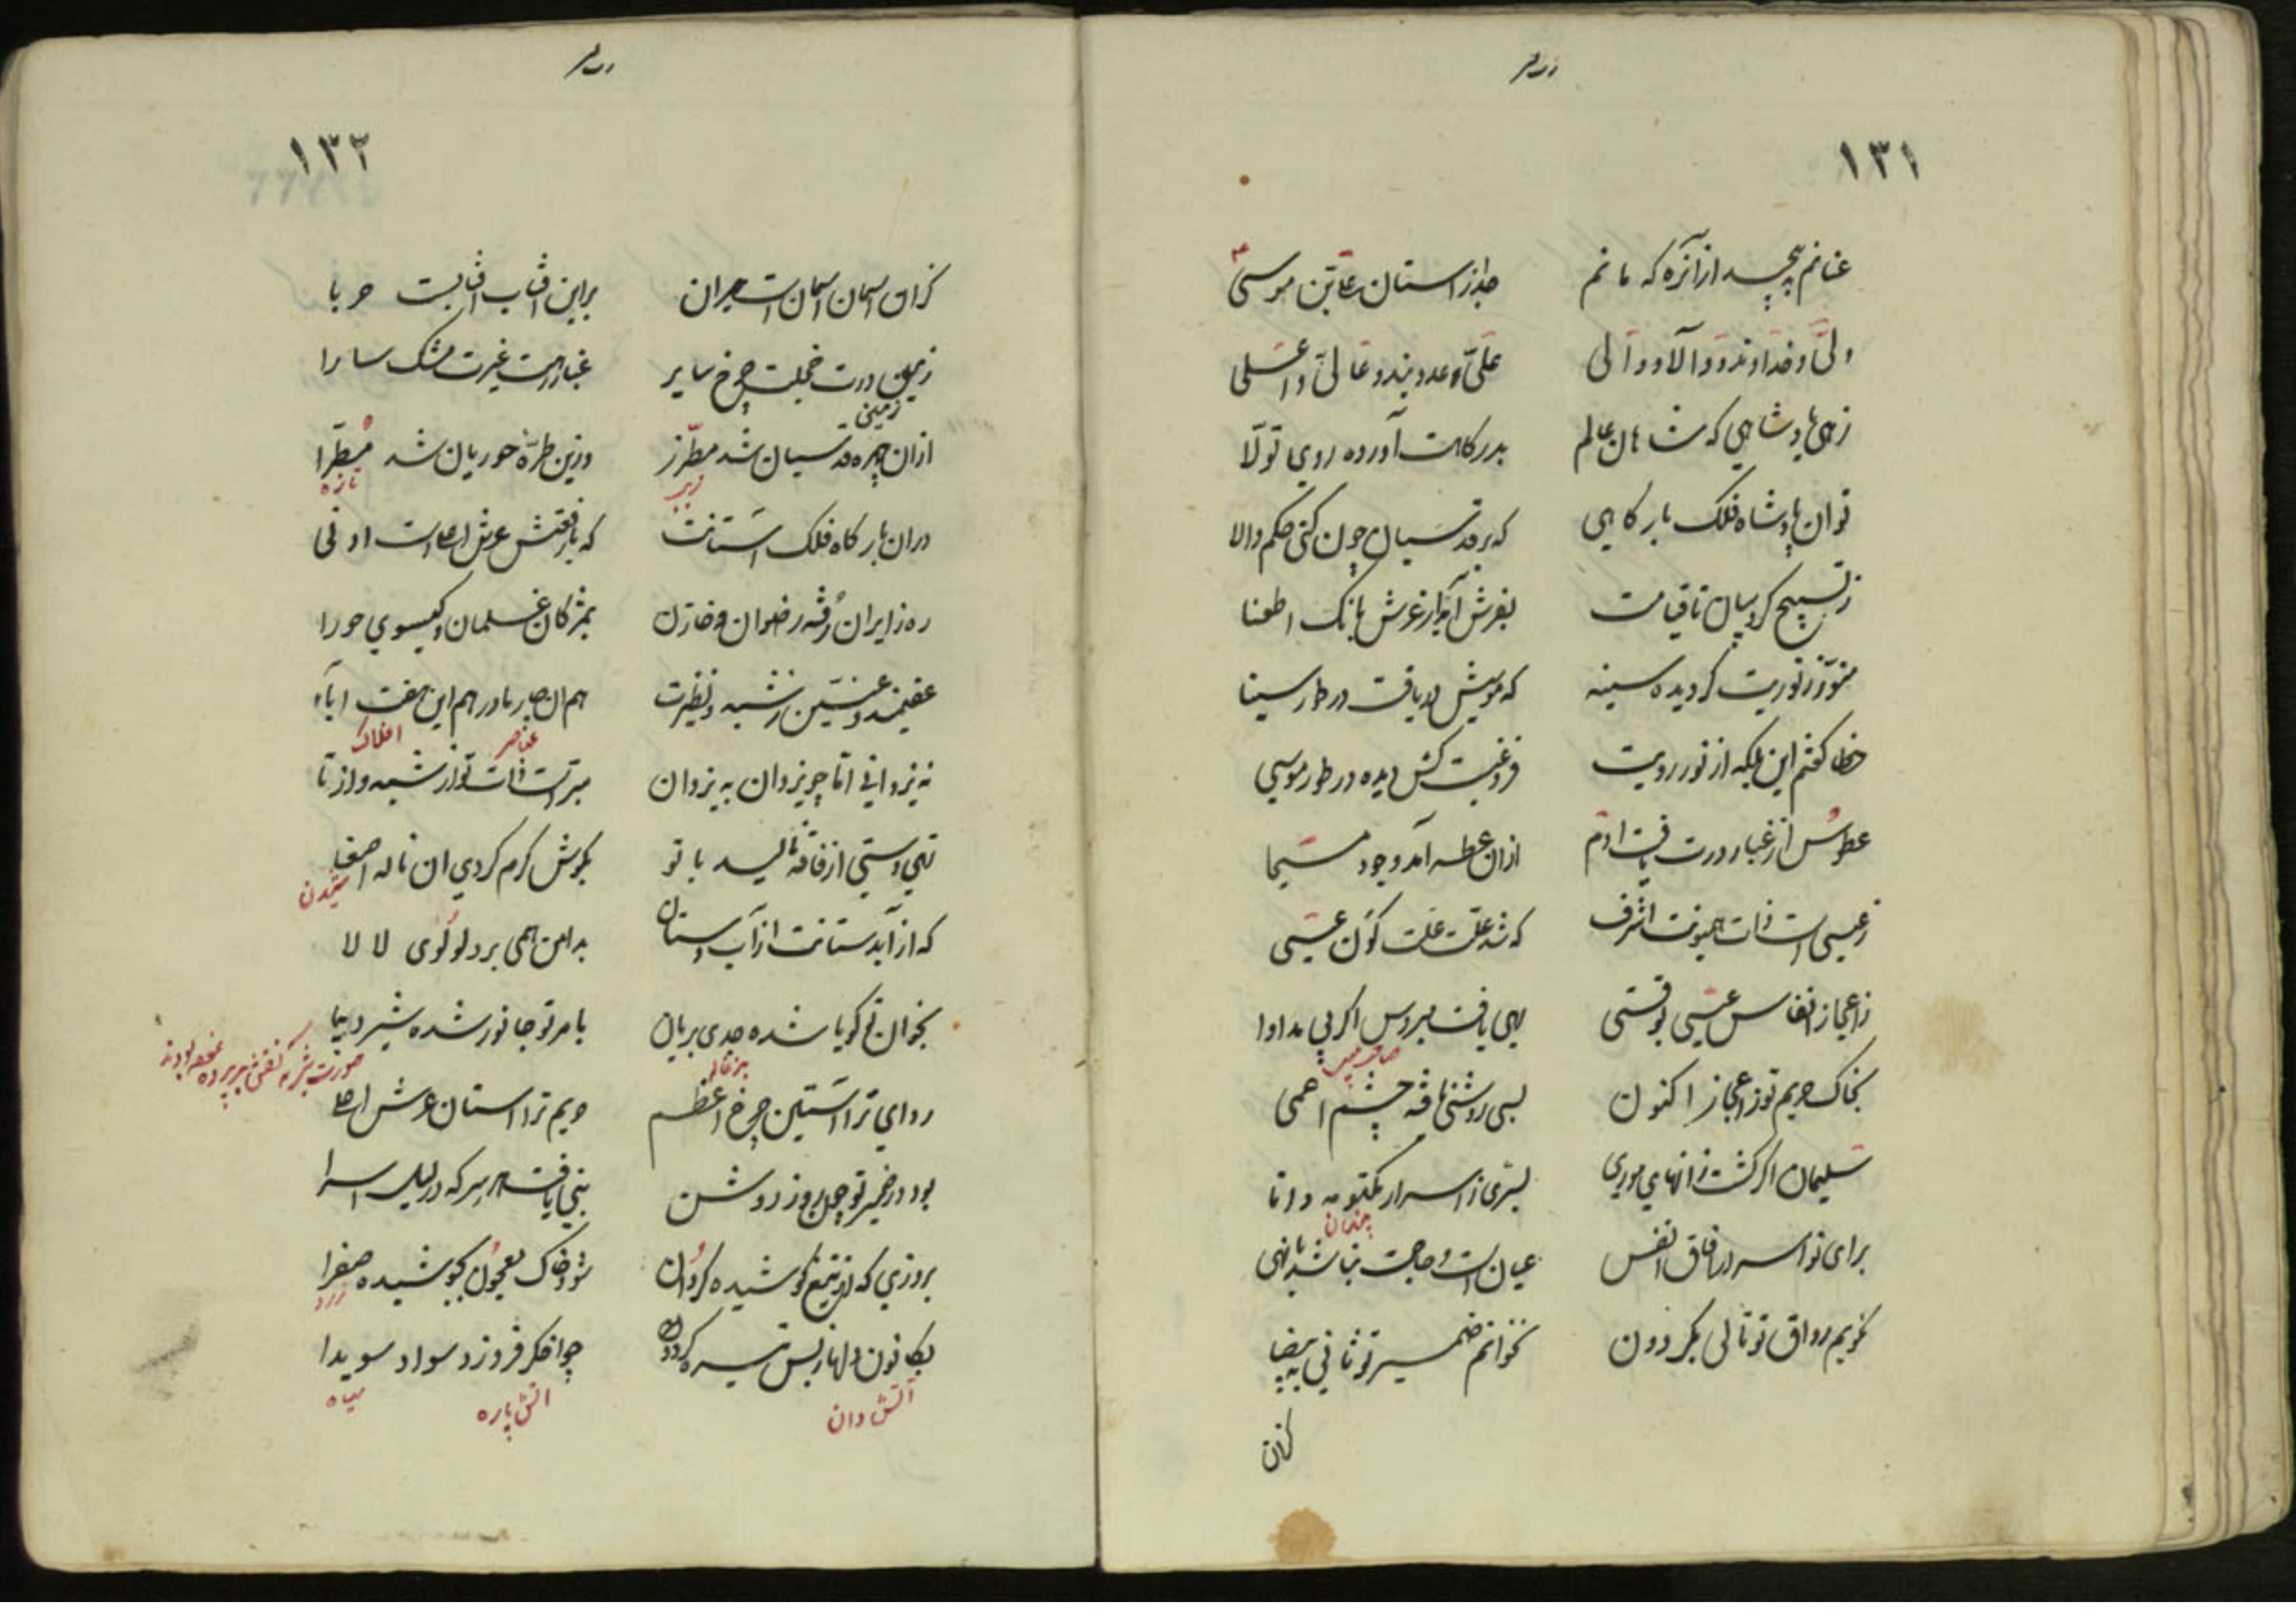 ۱۳۱
عنانم بپیچید ازان ره که مانم
جدا ز استان علی بن موسی
ولی و خداوند و والا و والی
علی و عدوبند و عالی و اعلی
زهی پادشاهی که شاهان عالم
بدرگاهت آورده روی تولّا
توان پادشاه فلک بارگاهی
که بر قدسیان چون کنی حکم والا
ز تسبیح کروبیان تا قیامت
بفرش آید از عرش بانگ اطعنا
منوّر ز نوریت گردیده سینه
که موسیش دریافت در طور سینا
خطا گفتم این بلکه از نور رویت
فروغیست کش دیده در طور موسی
عطوس از غبار درت یافت ادم
ازان عطسه آمد وجود مسیحا
ز عیسی است ذات همیونت اشرف
که شد علّت علّت کون عیسی
ز اعجاز انفاس عیسی بوقتی
بهی یافت مبروص اگر بی مداوا
بخاک حریم تو ز اعجاز اکنون
بسی روشنی یافته چشم اعمی
سلیمان اگر گشت ز انهای موری
بسرّی ز اسرار مکتومه دانا
پنهان
برای تو اسرار افاق انفس
عیان است و حاجت نباشد بانهی
نگویم رواق تو تالی بگردون
نخوانم ضمیر تو ثانی به بیضا
کزان
۱۳۲
کزان اسمان اسمان است حیران
براین افتاب افتابست حربا
زمین درت خجلت چرخ سایر
غبار رهت غیرت مشک سارا
ازان چهره قدسیان شد مطرّز
وزین طرّهٔ حوریان شد مطرّا
زیب
تازه
دران بارگاه فلک استانت
که با رفعتش عرش اعلاست ادنی
ره زایران رُفته رضوان و خازن
بمژگان غلمان و گیسوی حورا
عقیمند و عنّین ز شبه و نظیرت
هم ان چار مادر هم این هفت اباء
عناصر
افلاک
نه یزدانی امّا چو یزدان به یزدان
مبرّاست ذات تو از شبه و از تا
تهی دستی از فاقه نالید با تو
بگوش کرم کردی ان ناله اصغا
شنیدن
که از آبدستانت از آب دستان
بدامن همی برد لولوی لالا
بخوان تو گویا شده جدی بریان
بامر تو جانور شده شیر دیبا
بزغاله
ردای ترا استین چرخ اعظم
حریم ترا استان عرش اعلا
بود در ضمیر تو چون روز روشن
نبی یافت هر سر که در لیل اسرا
بروزی که از تیغ کوشیده گردان
شود خاک معجون بجوشیده صفرا
زرد
بکانون دلها ز بس تیره گردد
چو اخگر فروزد سواد سویدا
آتش دان
اتش پاره
سیاه